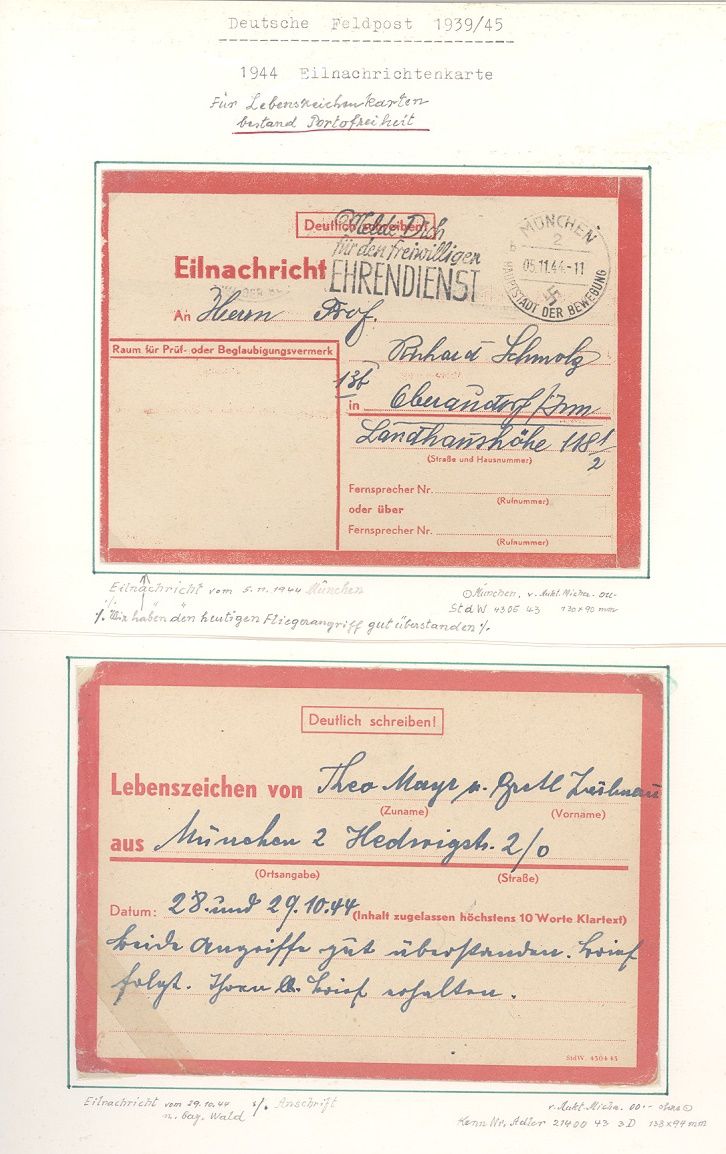 Deutsche Feldpost 1939/45
1944 Eilnachrichtenkarte
Für Lebenszeichenkarten
bestand Portofreiheit
Deutlich schreiben!
Melde Dich
für den freiwilligen
EHRENDIENST
MÜNCHEN
2
b 05.11.44.-11
HAUPTSTADT DER BEWEGUNG
Eilnachricht
An Herrn Prof.
Raum für Prüf- oder Beglaubigungsvermerk
Schmolz
13b
in Oberaudorf/Inn
Landhaushöhe 118 1/2
(Straße und Hausnummer)
Fernsprecher Nr.
(Rufnummer)
oder über
Fernsprecher Nr.
(Rufnummer)
Eilnachricht vom 5.11.1944 München
München, v.
StdW 4305 43 130x90 mm
·/. Wir haben den heutigen Fliegerangriff gut überstanden ·/.
Deutlich schreiben!
Lebenszeichen von Theo Mayr u. Gretl
(Zuname) (Vorname)
aus München 2 Hedwigstr. 2/0
(Ortsangabe) (Straße)
Datum: 28. und 29.10.44 (Inhalt zugelassen höchstens 10 Worte Klartext)
beide Angriffe gut überstanden. Brief
folgt. Ihren lb. Brief erhalten.
StdW. 4304 43
Eilnachricht vom 29.10.44 s/. Anschrift
n. bay. Wald
v. 00.- ohne
Kenn Nr. Adler 21400 43 3D 138x94mm